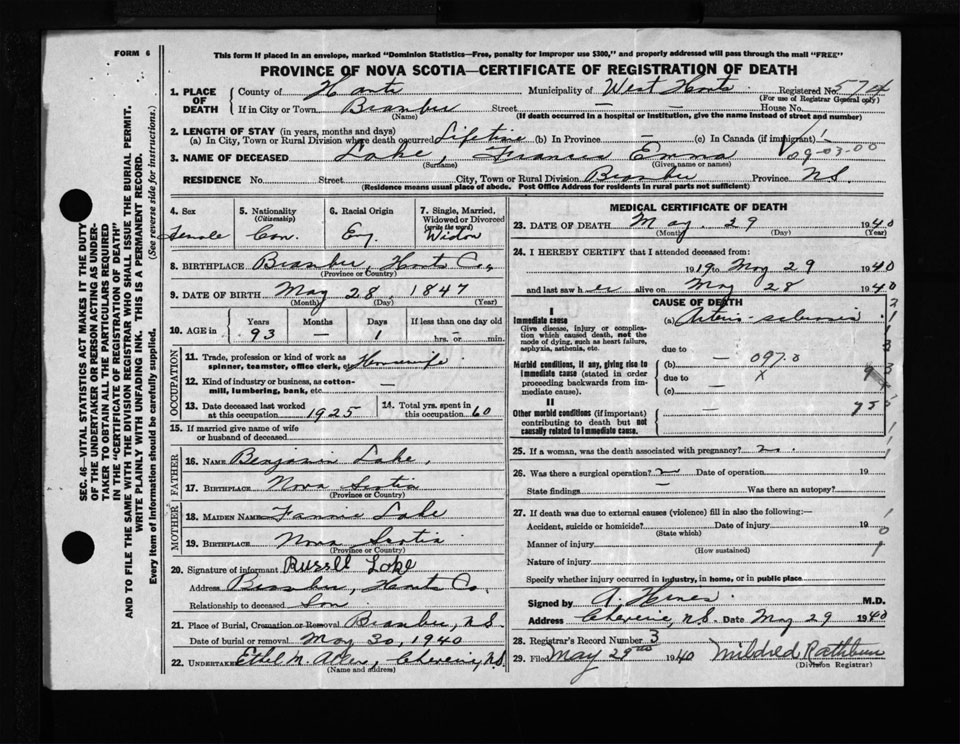 FORM 6
This form if placed in an envelope, marked "Dominion Statistics—Free, penalty for improper use $300," and properly addressed will pass through the mail "FREE"
PROVINCE OF NOVA SCOTIA—CERTIFICATE OF REGISTRATION OF DEATH
1. PLACE OF DEATH County of Hants Municipality of West Hants Registered No. 574
(For use of Registrar General only)
If in City or Town Bramber Street — House No. —
(Name) (If death occurred in a hospital or institution, give the name instead of street and number)
2. LENGTH OF STAY (in years, months and days)
(a) In City, Town or Rural Division where death occurred Lifetime (b) In Province — (c) In Canada (if immigrant)
3. NAME OF DECEASED Lake, Frances Emma 09-03-00
(Surname) (Given name or names)
RESIDENCE No. Street City, Town or Rural Division Bramber Province N.S.
(Residence means usual place of abode. Post Office Address for residents in rural parts not sufficient)
4. Sex Female
5. Nationality (Citizenship) Can.
6. Racial Origin Eng.
7. Single, Married, Widowed or Divorced (write the word) Widow
8. BIRTHPLACE Bramber, Hants Co.,
(Province or Country)
9. DATE OF BIRTH May 28 1847
(Month) (Day) (Year)
10. AGE in Years Months Days If less than one day old
93 — 1 hrs. or min.
OCCUPATION
11. Trade, profession or kind of work as spinner, teamster, office clerk, etc. Housewife
12. Kind of industry or business, as cotton-mill, lumbering, bank, etc. —
13. Date deceased last worked at this occupation 1925
14. Total yrs. spent in this occupation 60
15. If married give name of wife or husband of deceased
FATHER
16. NAME Benjamin Lake,
17. BIRTHPLACE Nova Scotia
(Province or Country)
MOTHER
18. MAIDEN NAME Fannie Lake
19. BIRTHPLACE Nova Scotia
(Province or Country)
20. Signature of informant Russell Lake
Address Bramber, Hants Co.
Relationship to deceased Son
21. Place of Burial, Cremation or Removal Bramber, N.S.
Date of burial or removal May 30, 1940
22. UNDERTAKER Ethel M. Cheverie, N.S.
(Name and address)
MEDICAL CERTIFICATE OF DEATH
23. DATE OF DEATH May 29 1940
(Month) (Day) (Year)
24. I HEREBY CERTIFY that I attended deceased from:
1919 to May 29 1940
and last saw her alive on May 28 1940
CAUSE OF DEATH
I
Immediate cause (a) Arterio-sclerosis
Give disease, injury or complication which caused death, not the mode of dying, such as heart failure, asphyxia, asthenia, etc.
due to
Morbid conditions, if any, giving rise to immediate cause (stated in order proceeding backwards from immediate cause). (b) — 097.0
due to — X
(c)
II
Other morbid conditions (if important) contributing to death but not causally related to immediate cause. —
25. If a woman, was the death associated with pregnancy? no.
26. Was there a surgical operation? Date of operation 19
State findings — Was there an autopsy?
27. If death was due to external causes (violence) fill in also the following:—
Accident, suicide or homicide? Date of injury 19
(State which)
Manner of injury
(How sustained)
Nature of injury
Specify whether injury occurred in industry, in home, or in public place
Signed by M.D.
Address Cheverie, N.S. Date May 29 1940
28. Registrar's Record Number 3
29. Filed May 29th 1940 Mildred Rathbun
(Division Registrar)
SEC. 46—VITAL STATISTICS ACT MAKES IT THE DUTY
OF THE UNDERTAKER OR PERSON ACTING AS UNDER-
TAKER TO OBTAIN ALL THE PARTICULARS REQUIRED
IN THE "CERTIFICATE OF REGISTRATION OF DEATH"
AND TO FILE THE SAME WITH THE DIVISION REGISTRAR WHO SHALL ISSUE THE BURIAL PERMIT.
WRITE PLAINLY WITH UNFADING INK. THIS IS A PERMANENT RECORD.
Every item of information should be carefully supplied. (See reverse side for instructions.)